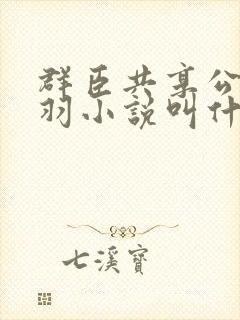 群臣共享公
羽小說叫什
七溪寶